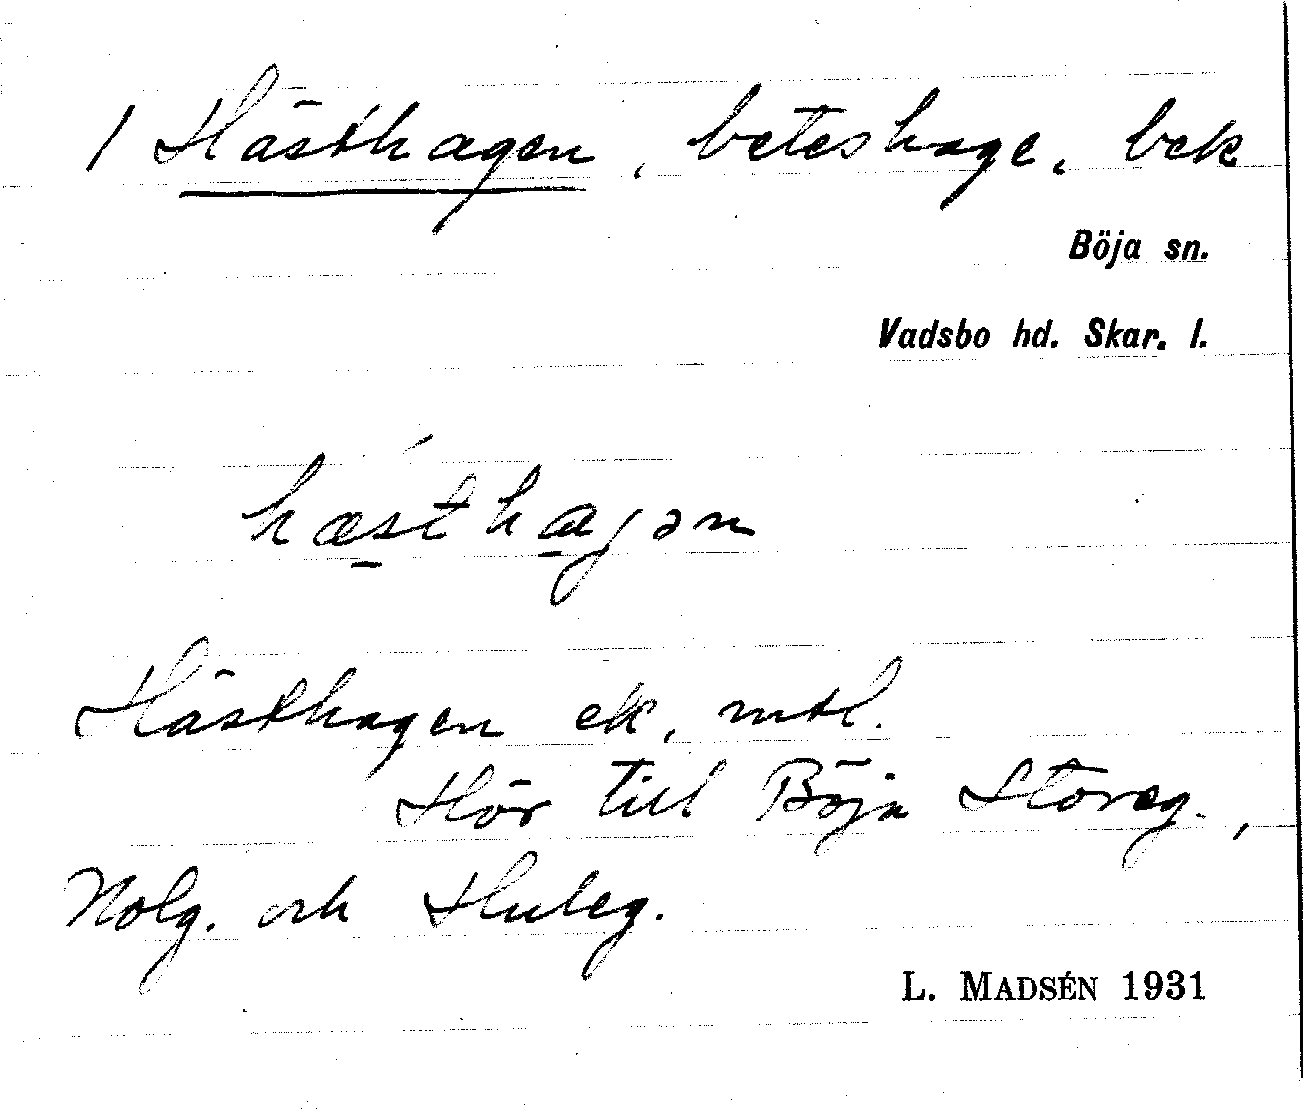 1 Hästhagen, beteshage, bek
Böja sn.
Vadsbo hd. Skar. l.
hæsthagən
Hästhagen ek, mtl.
Hör till Böja Storeg.,
Nolg. och Huleg.
L. MADSÉN 1931